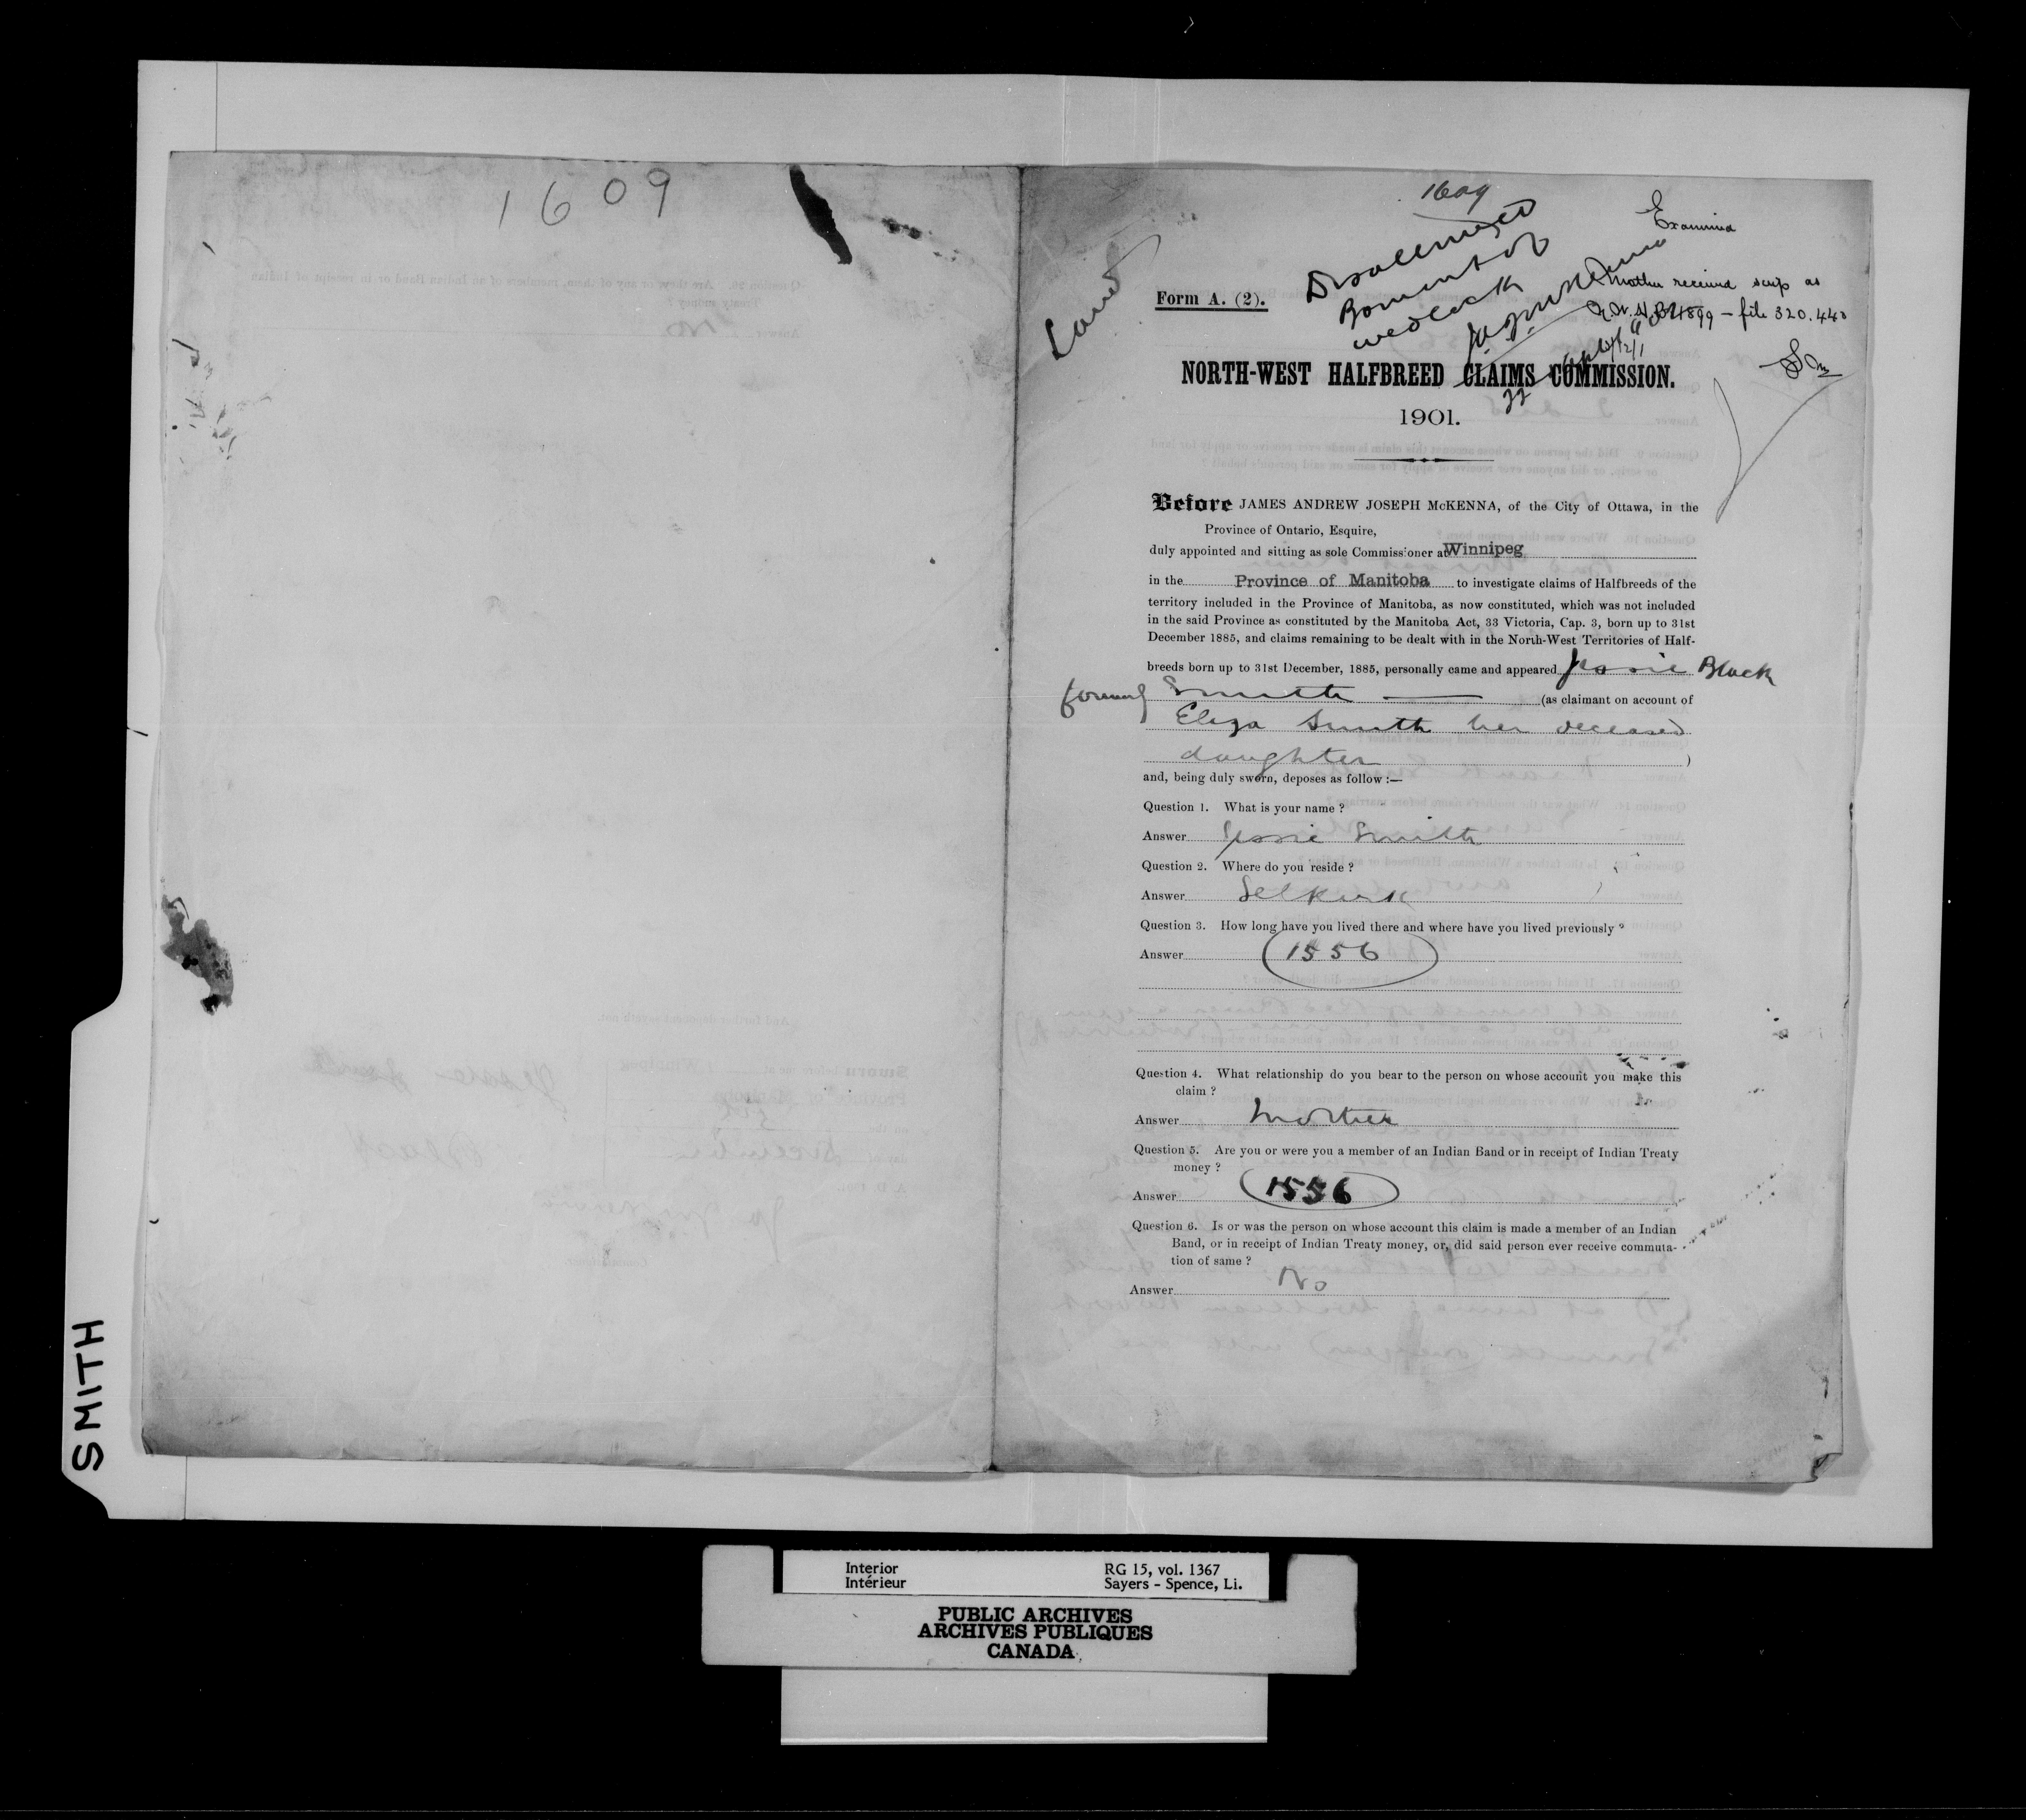 1609
1609
Disallowed
Born out of
wedlock
Examined
Mother received scrip as
N.W.H.B. 1899 - file 320.443
Land
Form A. (2).
NORTH-WEST HALFBREED CLAIMS COMMISSION.
1901.
Before JAMES ANDREW JOSEPH McKENNA, of the City of Ottawa, in the
Province of Ontario, Esquire,
duly appointed and sitting as sole Commissioner at Winnipeg
in the Province of Manitoba to investigate claims of Halfbreeds of the
territory included in the Province of Manitoba, as now constituted, which was not included
in the said Province as constituted by the Manitoba Act, 33 Victoria, Cap. 3, born up to 31st
December 1885, and claims remaining to be dealt with in the North-West Territories of Half-
breeds born up to 31st December, 1885, personally came and appeared Jessie Black
formerly Smith (as claimant on account of
Eliza Smith her deceased
daughter )
and, being duly sworn, deposes as follow :—
Question 1. What is your name ?
Answer Jessie Smith
Question 2. Where do you reside ?
Answer Selkirk
Question 3. How long have you lived there and where have you lived previously ?
Answer 1556
Question 4. What relationship do you bear to the person on whose account you make this
claim ?
Answer Mother
Question 5. Are you or were you a member of an Indian Band or in receipt of Indian Treaty
money ?
Answer 1556
Question 6. Is or was the person on whose account this claim is made a member of an Indian
Band, or in receipt of Indian Treaty money, or, did said person ever receive commuta-
tion of same ?
Answer No
SMITH
Interior
Intérieur
RG 15, vol. 1367
Sayers - Spence, Li.
PUBLIC ARCHIVES
ARCHIVES PUBLIQUES
CANADA